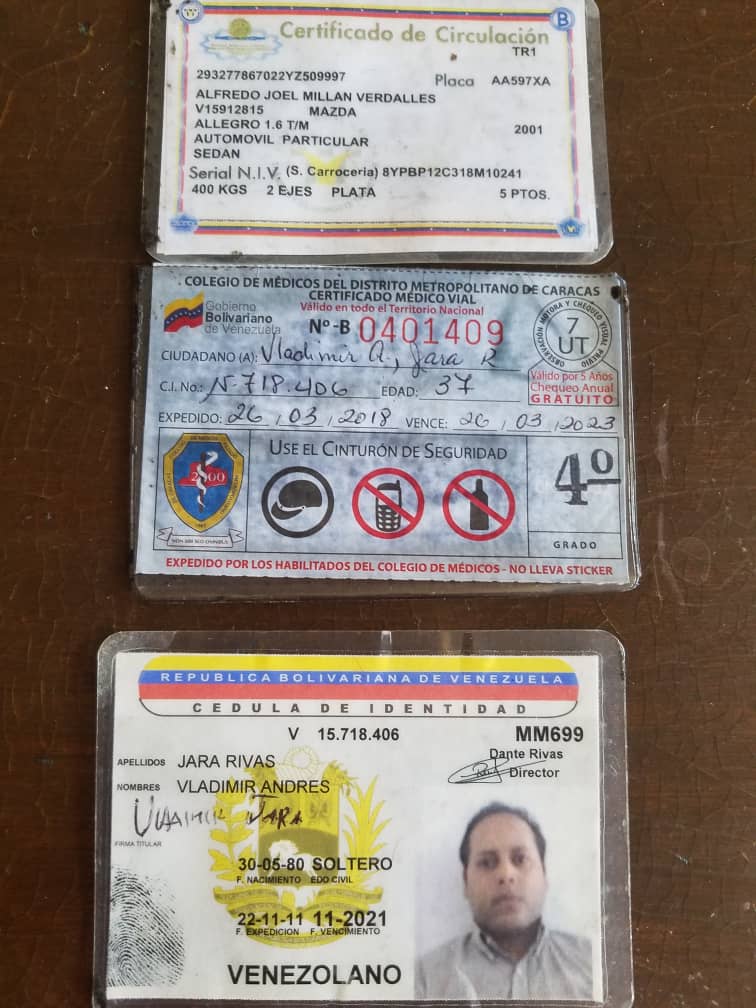 Certificado de Circulación
TR1
293277867022YZ509997 Placa AA597XA
ALFREDO JOEL MILLAN VERDALLES
V15912815 MAZDA
ALLEGRO 1.6 T/M 2001
AUTOMOVIL PARTICULAR
SEDAN
Serial N.I.V. (S. Carroceria) 8YPBP12C318M10241
400 KGS 2 EJES PLATA 5 PTOS.
COLEGIO DE MÉDICOS DEL DISTRITO METROPOLITANO DE CARACAS
CERTIFICADO MÉDICO VIAL
Válido en todo el Territorio Nacional
Gobierno
Bolivariano
de Venezuela
Nº-B 0401409
OBSERVACIÓN MOTORA Y CHEQUEO VISUAL PREVIO
7
UT
CIUDADANO (A): Vladimir A, Jara R
Válido por 5 Años
Chequeo Anual
GRATUITO
C.I. No.: 718.406 EDAD: 37
EXPEDIDO: 26, 03, 2018 VENCE: 26, 03, 2023
USE EL CINTURÓN DE SEGURIDAD
4º
GRADO
EXPEDIDO POR LOS HABILITADOS DEL COLEGIO DE MÉDICOS - NO LLEVA STICKER
REPUBLICA BOLIVARIANA DE VENEZUELA
CEDULA DE IDENTIDAD
V 15.718.406 MM699
Dante Rivas
Director
APELLIDOS JARA RIVAS
NOMBRES VLADIMIR ANDRES
Vladimir Jara
FIRMA TITULAR
30-05-80 SOLTERO
F. NACIMIENTO EDO CIVIL
22-11-11 11-2021
F. EXPEDICION F. VENCIMIENTO
VENEZOLANO